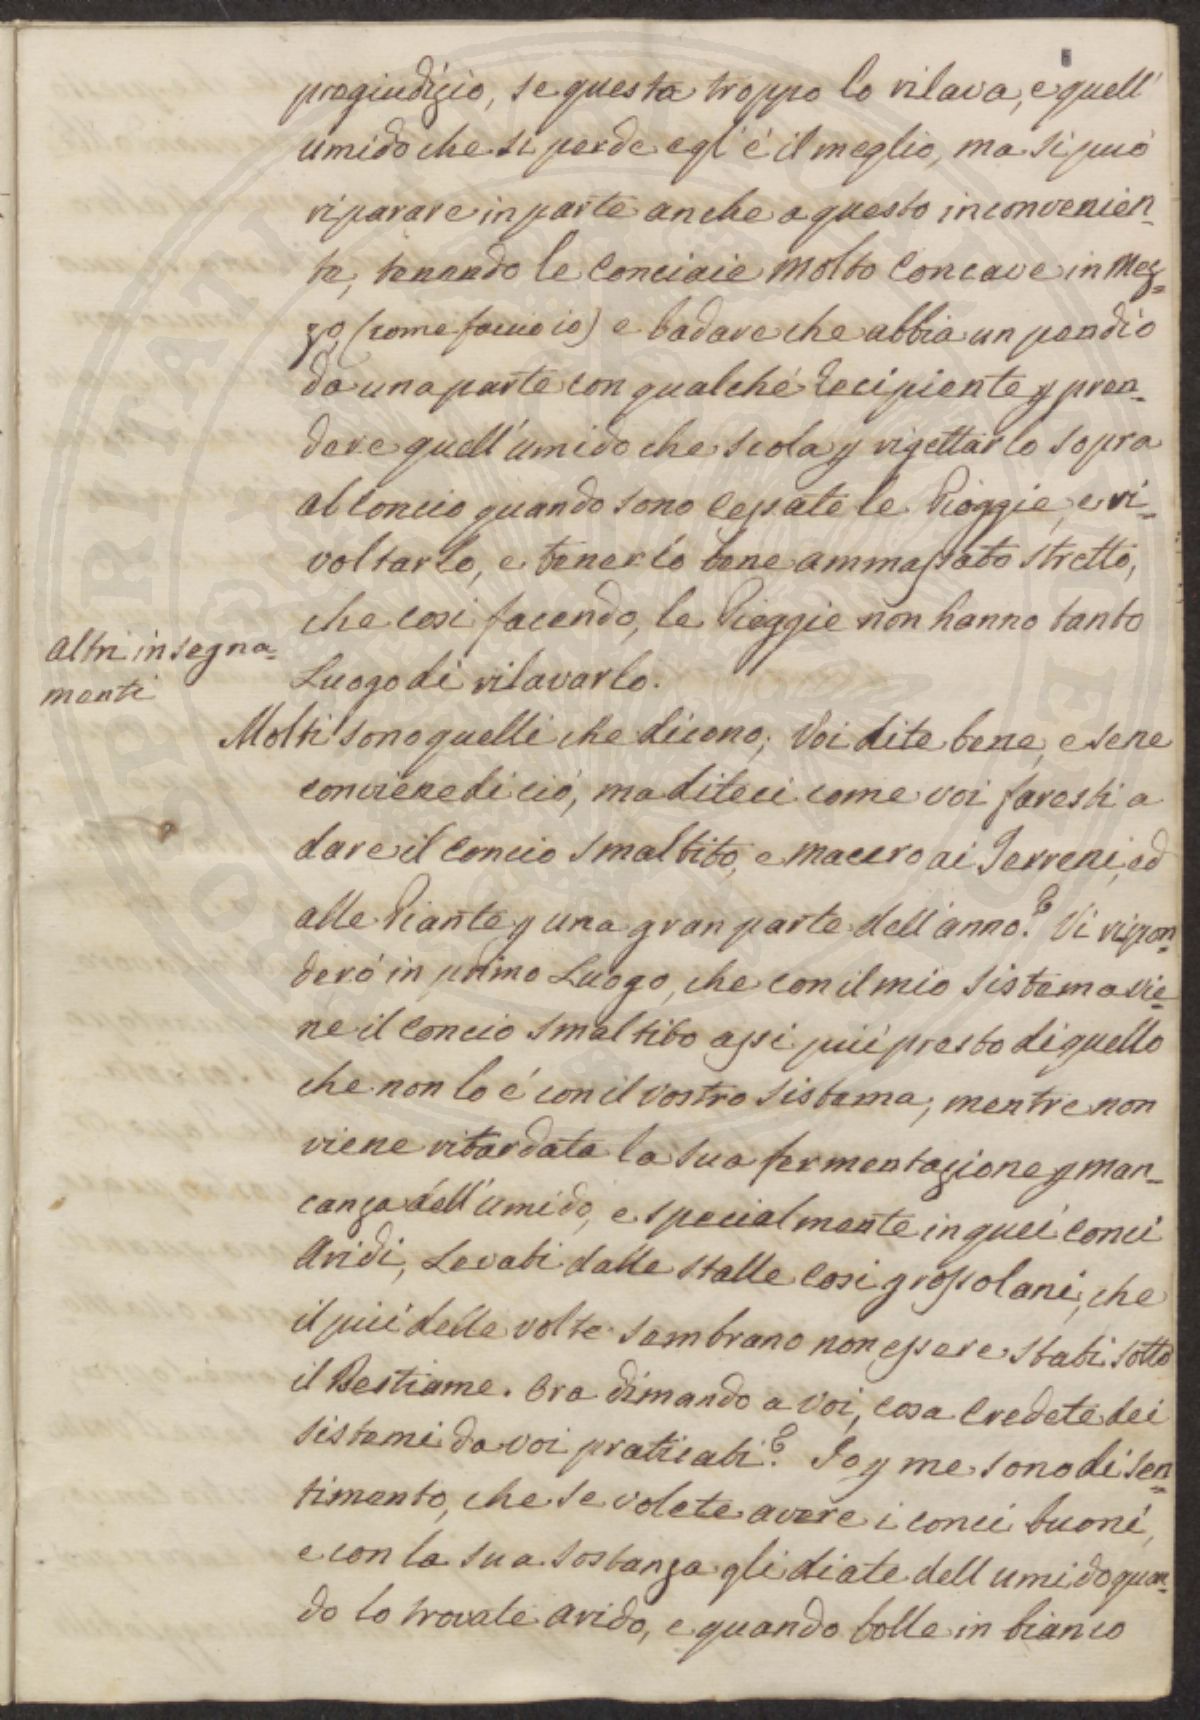 pregiudizio, se questa troppo lo rilava, e quell'
umido che si perde egl'é il meglio, ma si può
riparare in parte anche a questo inconvenien=
te, tenendo le Conciaie molto Concave in Mez=
zo, (come faccio io) e badare che abbia un pendio
da una parte con qualche Recipiente p pren=
dere quell'umido che scola p rigettarlo sopra
al Concio quando sono Cessate le Pioggie, e ri=
voltarlo, e tenerlo bene ammassato stretto,
che cosi facendo, le Pioggie non hanno tanto
Luogo di rilavarlo.
Altri insegna=
menti
Molti sono quelli che dicono; Voi dite bene, e se ne
conviene di ció, ma diteci come voi faresti a
dare il Concio smaltito, e macero ai Terreni, ed
alle Piante p una gran parte dell'anno? Vi rispon=
deró in primo Luogo, che con il mio sistema vie=
ne il Concio smaltito assi piú presto di quello
che non lo é con il vostro sistema; mentre non
viene ritardata la sua fermentazione p man=
canza dell'umido, e specialmente in quei conci
Aridi, Levati dalle stalle Cosi grossolani, che
il piú delle volte sembrano non essere stati sotto
il Bestiame. Ora dimando a Voi, cosa Credete dei
sistemi da voi praticati? Io p me sono di sen=
timento, che se volete avere i conci buoni,
e con la sua sostanza gli diate dell umido quan=
do lo trovate arido, e quando bolle in bianco